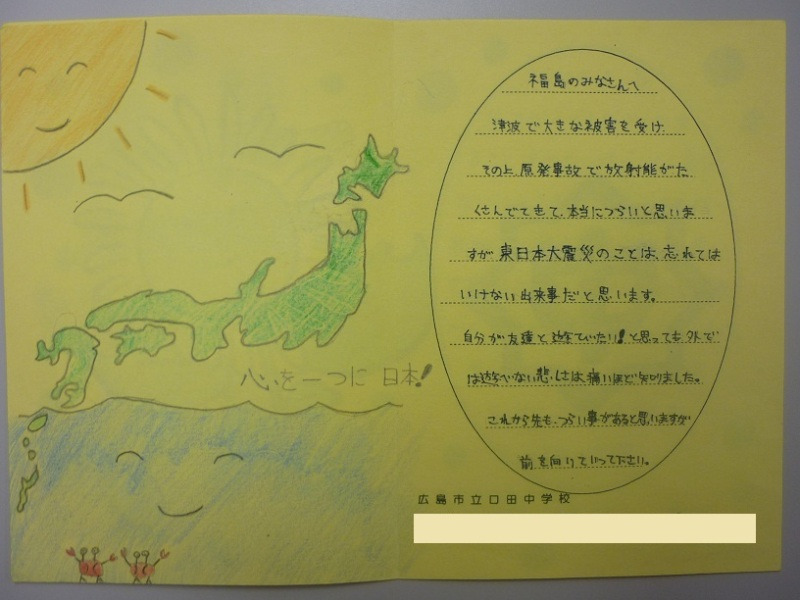 心を一つに 日本!
福島のみなさんへ
津波で大きな被害を受け
その上 原発事故で放射能がた
くさんでてきて、本当につらいと思いま
すが 東日本大震災のことは、忘れては
いけない出来事だと思います。
自分が友達と遊んでいたい!と思っても外で
は遊べない悲しさは、痛いほど知りました。
これから先も、つらい事があると思いますが
前を向けていって下さい。
広島市立口田中学校